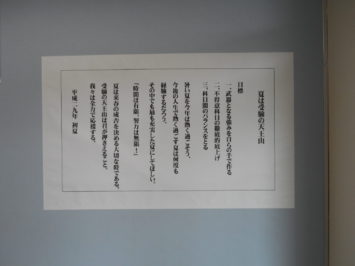 夏は受験の天王山
目標
一、武器となる強みを自らの手で作る
二、不得意科目の徹底的底上げ
三、科目間のバランスをとる
暑い夏を今年は熱く過ごそう。
今後の人生で熱く過ごす夏は何度も
経験するだろう。
その中でも最も充実した夏にしてほしい。
「時間は有限、努力は無限！」
夏は来春の成否を決める大切な時である。
受験の天王山は君が押さえること。
我々は全力で応援する。
平成二九年 初夏